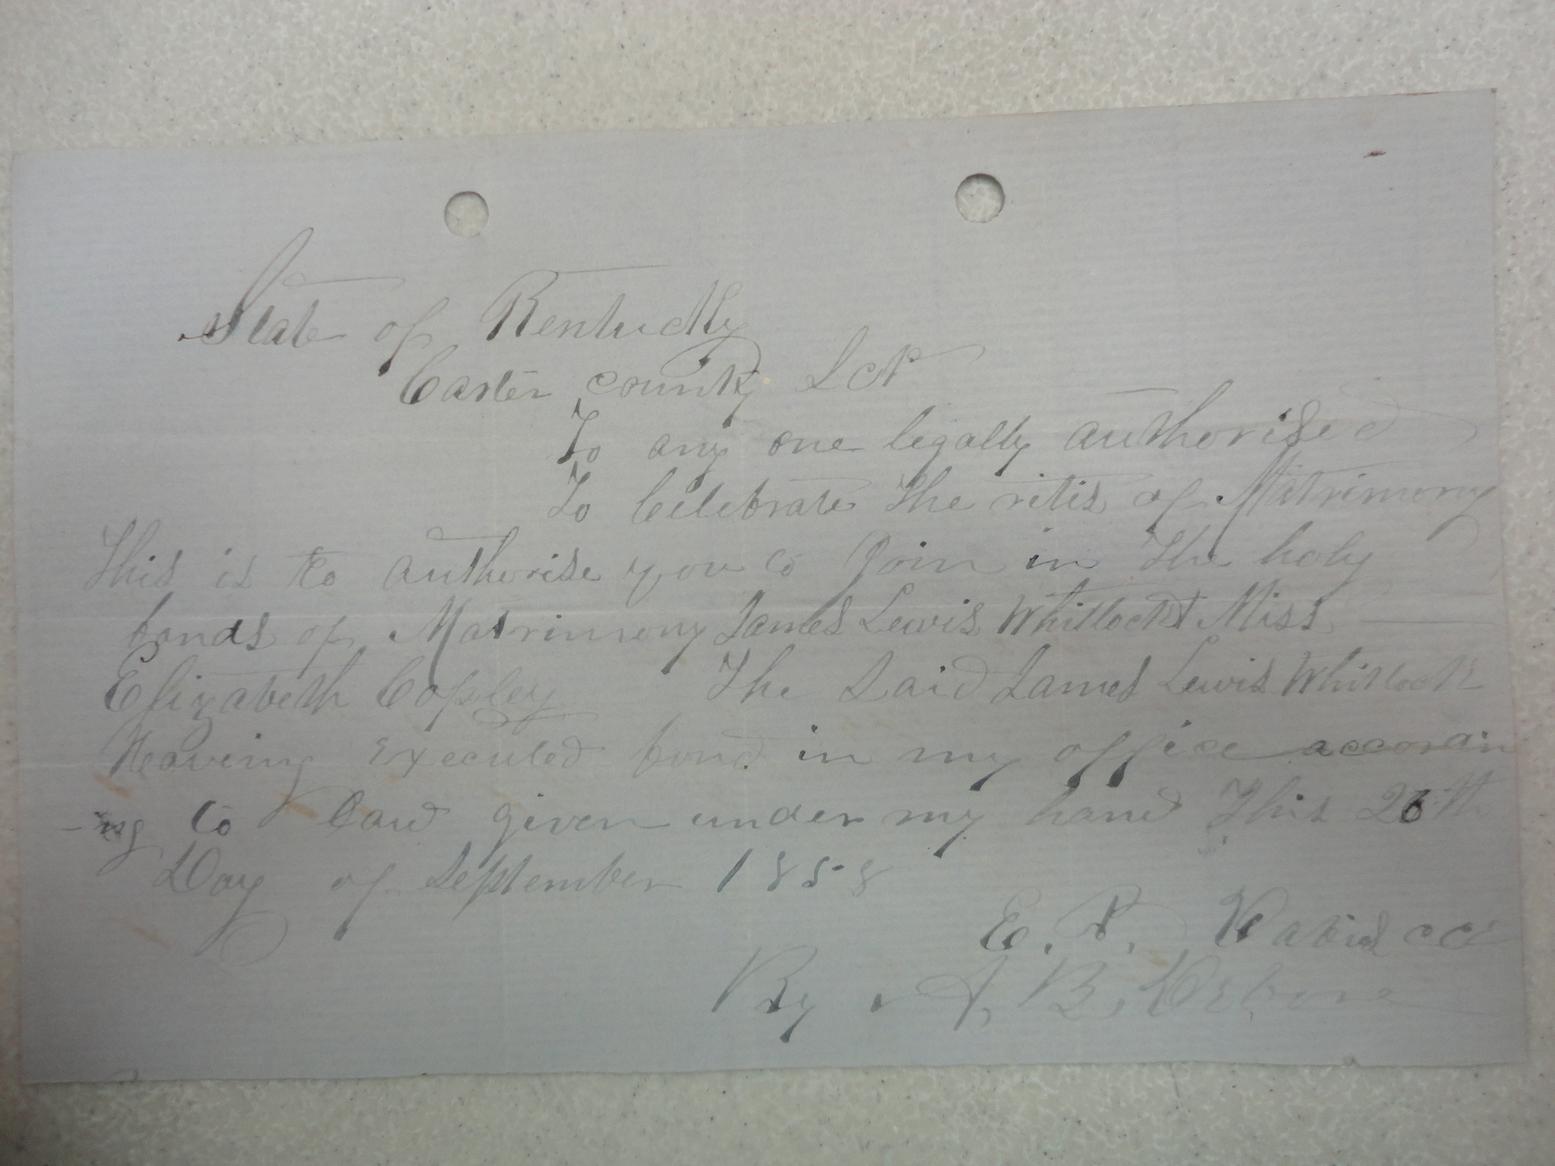 State of Kentucky
Carter county Sct
To any one legally authorised
To Celebrate the rites of Matrimony
This is to authorise you to Join in the holy
bonds of Matrimony James Lewis Whitlock & Miss
Elizabeth Copley The Said James Lewis Whitlock
Haveing Executed bond in my office accordin
-ng to Law given under my hand This 26th
Day of September 1858
E. P. Davis cc
By A. B.